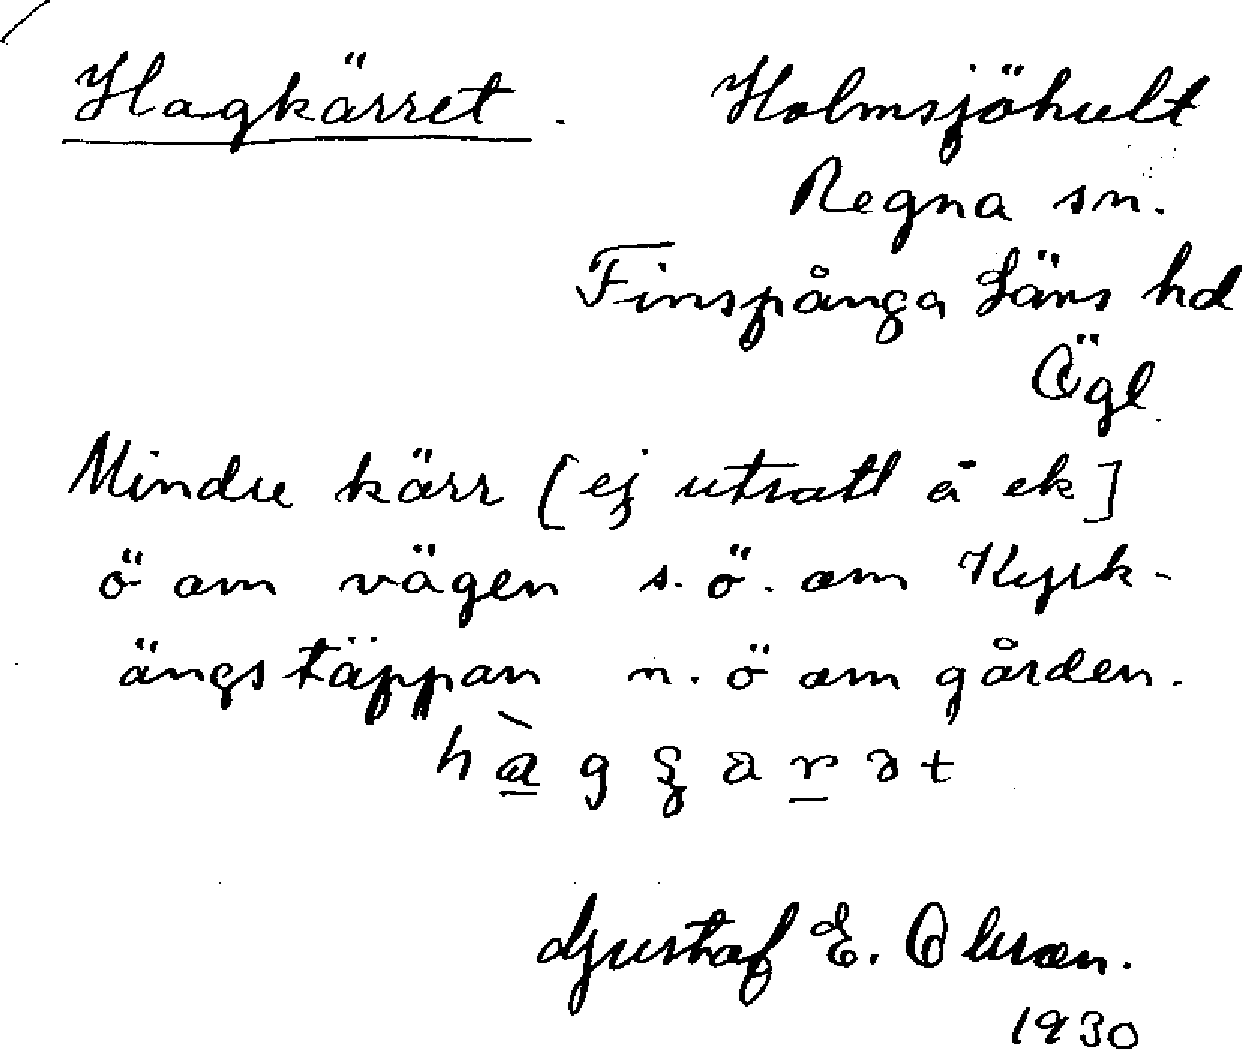 Hagkärret. Holmsjöhult
Regna sn.
Finspånga Läns hd
Ögl.
Mindre kärr [ej utsatt å ek]
ö om vägen s.ö. om Kyrk-
ängstäppan n.ö om gården.
Gustaf E. Olsson.
1930